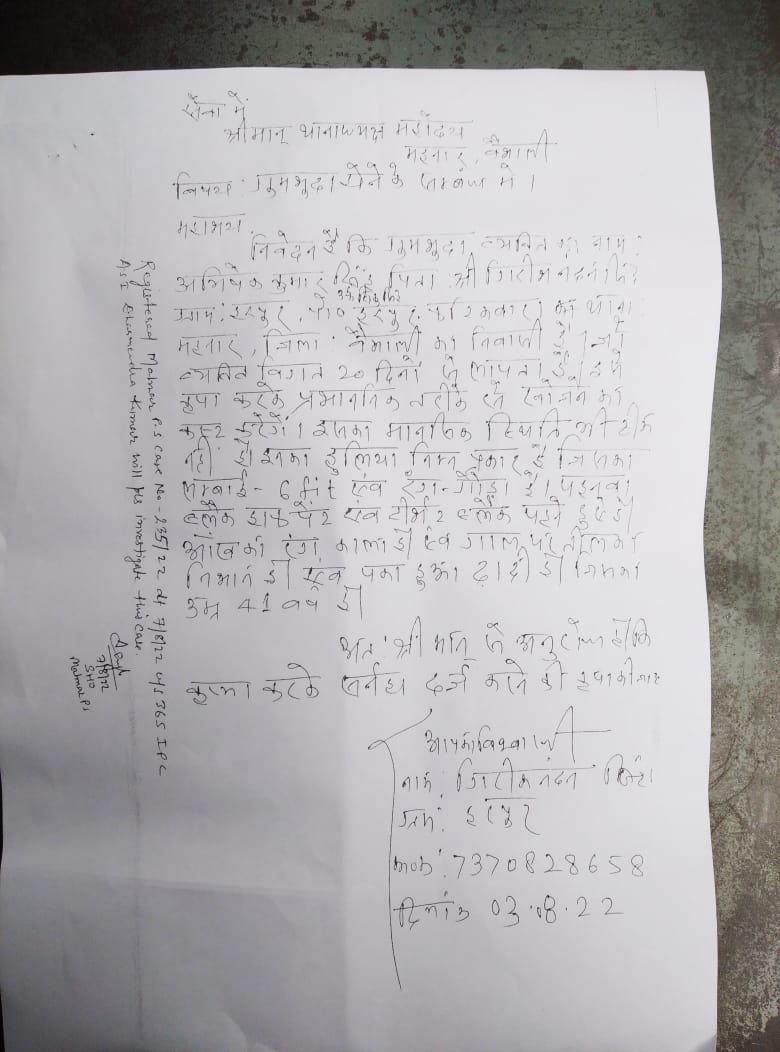 सेवा में
श्रीमान् थानाध्यक्ष महोदय
महनार, वैशाली
विषय: गुमशुदा होने के सम्बंध में।
महाशय,
निवेदन है कि गुमशुदा व्यक्ति का नाम:
अभिषेक कुमार सिंह पिता श्री गिरीश नन्दन सिंह
ग्राम: इस्पुर, पो० इस्पुर थाना:
महनार, जिला: वैशाली का निवासी है। जो
व्यक्ति विगत 20 दिनों से लापता है। इसे
कृपा करके तरीके से खोजने का
कष्ट करेंगें। इसका मानसिक स्थिति भी ठीक
नही है। इसका हुलिया निम्न प्रकार है जिसका
लम्बाई - 6 फीट एवं रंग - गोड़ा है। पहनवा
ब्लैक हाफ पेंट एवं टीशर्ट ब्लैक पहने हुए है।
आँख का रंग काला है एवं गाल पर
निशान है। एवं पका हुआ दाढ़ी है। जिसका
उम्र 41 वर्ष है।
अत: श्री मान् से अनुरोध है कि
कृपा करके दर्ज करने की कृपा की जाए
आपका विश्वासी
नाम: गिरीश नंदन सिंह
ग्राम: इस्पुर
मो०: 7370828658
दिनांक 03.08.22
Registered Mahnar P.S Case No - 235/22 dt 7/8/22 u/s 365 IPC
A.S.I Dharmendra Kumar will pls investigate this case.
7/8/22
SHO
Mahnar PS